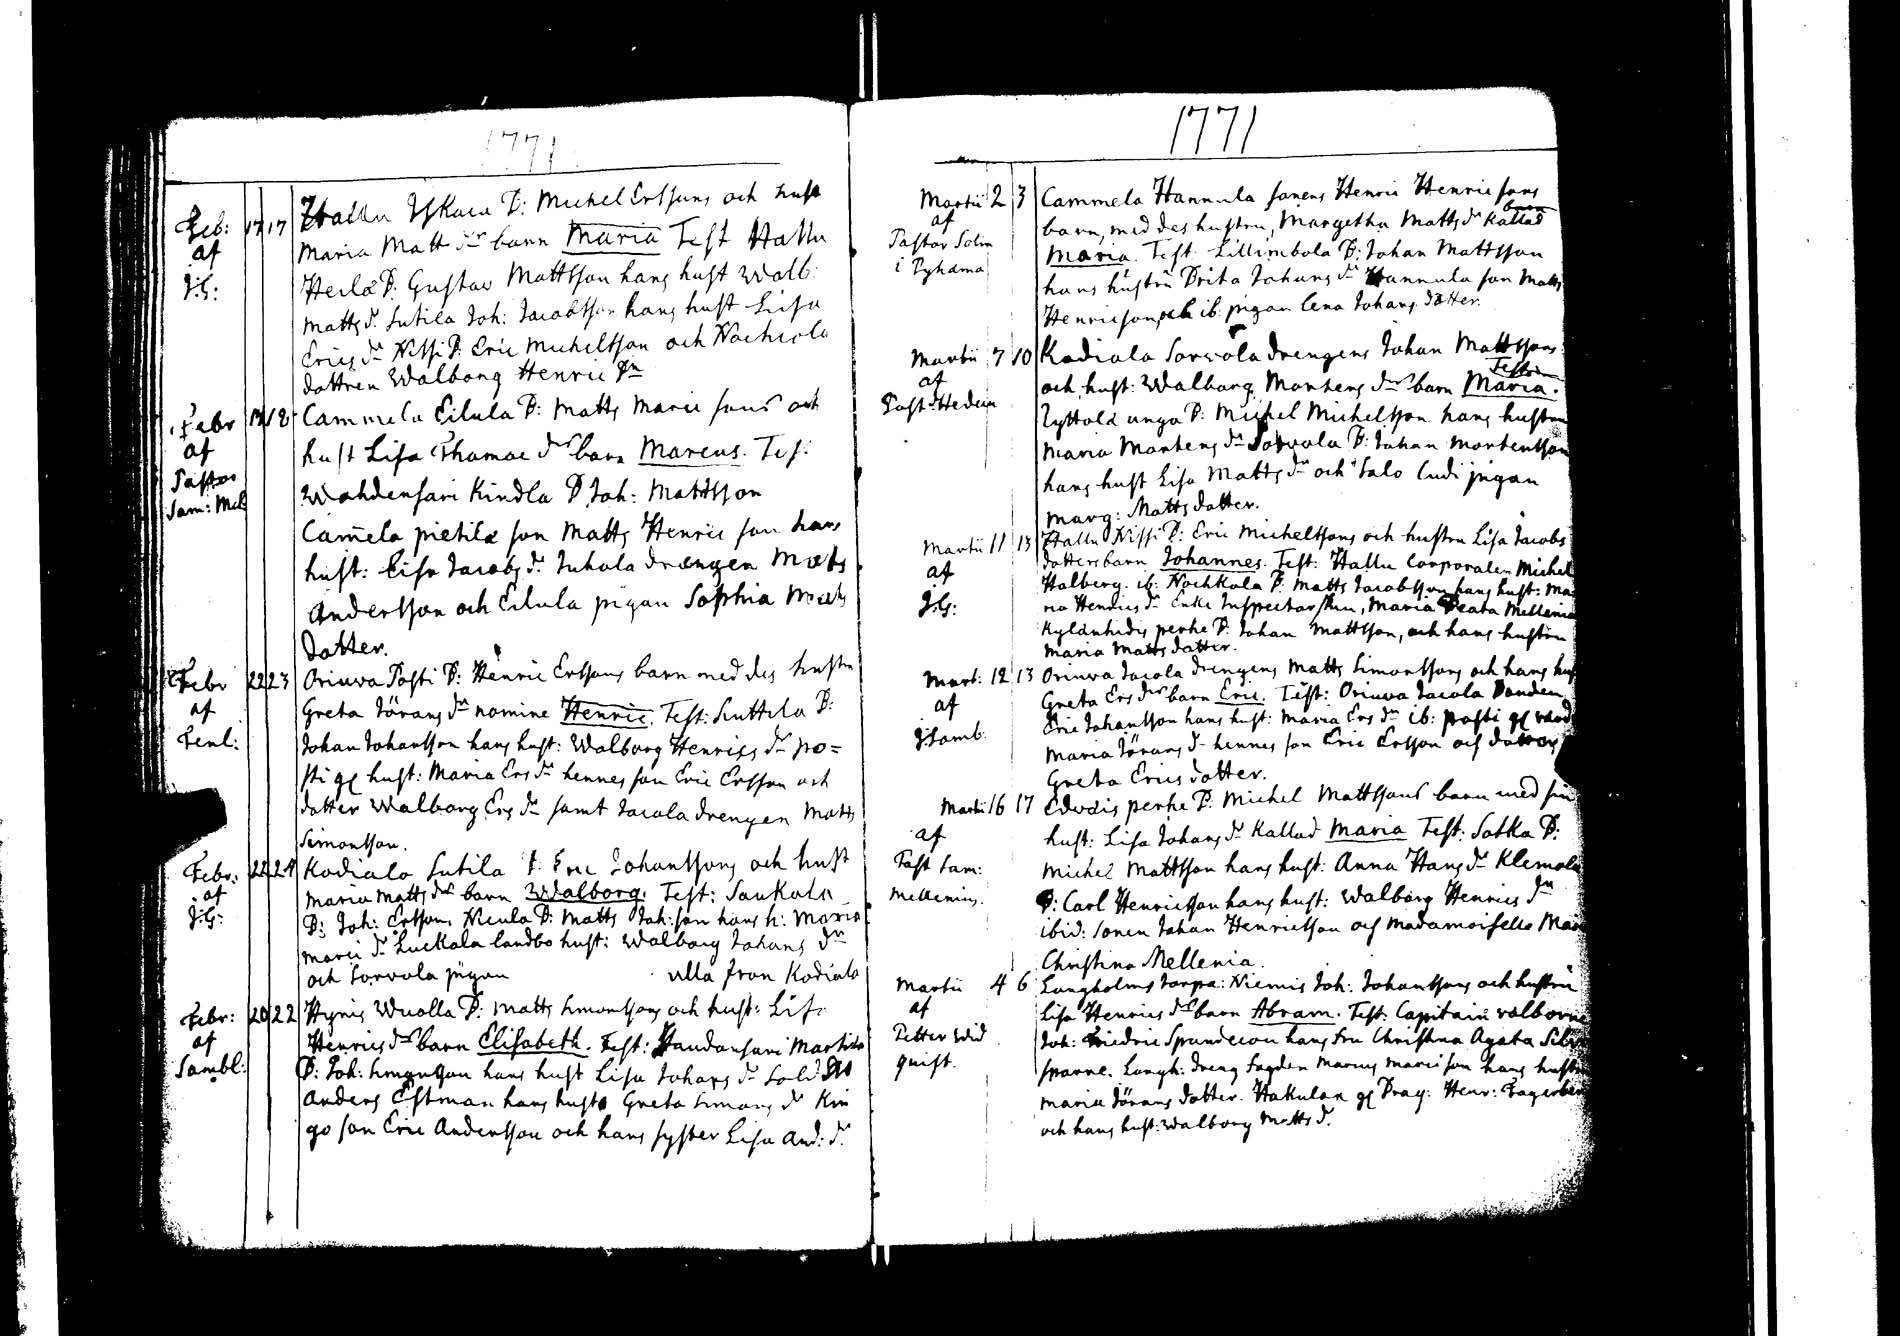 1771
Feb: 17 17 Hallu Yskaca B: Michel Erssons och hust
af Maria Matts dr barn Maria Test Hallu
J.G: Heila B: Gustav Mattsson hans hust Walb:
Matts dr. Sutila Joh: Jacobsson hans hust Lisa
Erics dr Nissi B: Eric Michelsson och Nochcola
dottren Walborg Henric dr
Febr 17 18 Cammela Eilula B: Matts Marci sons och
af hust Lisa Thomae drs barn Marcus. Tes:
Pastor Wahdensari Kindla B Joh: Mattsson
Sam: Mel Camela pietilä son Matts Henric son hans
hust: Lisa Jacobs dr. Juhola drengen Mats
Andersson och Eilula pigan Sophia Mats
dotter.
Febr 22 23 Oriuva Pasti B: Henric Erssons barn med des hustru
af Greta Jörans dr nomine Henric. Test: Suttila B:
Fenl: Johan Johansson hans hust: Walborg Henrics dr po=
sti gl hust: Maria Ers dr hennes son Eric Ersson och
dotter Walborg Ers dr samt Jacola drengen Matts
Simonsson.
Febr: 22 24 Kodiala Sutila B: Eric Johanssons och hust
af Maria Matts drs barn Walborg. Test: Saukola
J.G: B: Joh: Ersson, Nicula B: Matts Joh:son hans h: Maria
Marci dr Luckala landbo hust: Walborg Johans dr
och Sorvola pigan ulla fron Kodiala
Febr: 20 22 Hynis Wuolla B: Matts Simonssons och hust: Lisa
af Henrics drs barn Elisabeth. Test: Haudansari Martila
Sambl: B: Joh: Simonsson hans hust Lisa Johans dr Sold
Anders Estman hans hust Greta Simons dr Kin
go son Eric Andersson och hans syster Lisa And: dr.
1771
Martii 2 3 Cammela Hannula sonens Henric Henricsons
af barn, med des hustru, Margetha Matts dr kallad
Pastor Solin Maria. Test. Lillimbola B: Johan Mattsson
i Pyhäma hans hustru Brita Johans dr Hannula son Matts
Henricson, och ib: pigan Lena Johans dotter.
Martii 7 10 Kodiala Sorvola drengens Johan Mattssons
af och hust: Walborg Mortens drs barn Maria.
Past: Hedein Zyttälä unga B: Michel Michelsson hans hustru
Maria Mortens dr Sorvola B: Johan Mortensson
hans hust Lisa Matts dr och Salo Ludi pigan
Marg: Matts dotter.
Martii 11 13 Hallu Nissi B: Eric Michelssons och hustru Lisa Jacobs
af dotters barn Johannes. Test: Hallu Corporalen Michel
J.G: Halberg. ib: Nochkola B: Matts Jacobsson hans hust: Ma
ria Henrics dr Enke Inspectorskan, Maria Beata Mellenia
Kylänhidis perhe B: Johan Mattsson, och hans hustru
Maria Matts dotter.
Mart: 12 13 Oriuva Jacola drengens Matts Simonssons och hans hus
af Greta Ers drs barn Eric. Test: Oriuva Jacola Bonden
J:Samb: Eric Johansson hans hust: Maria Ers dr ib: pasti gl värd
Maria Jörans dr hennes son Eric Ersson och dotter
Greta Erics dotter.
Martii 16 17 Edväis perhe B: Michel Mattssons barn med sin
af hust: Lisa Johans dr kallad Maria Test: Sotka B:
Past Sam: Michel Mattsson hans hust: Anna Hans dr Klemola
Mellenius. B: Carl Henricsson hans hust: Walborg Henrics dr
ibid: Sonen Johan Henricsson och Madamoiselle Mar
Christina Mellenia.
Martii 4 6 Langholms torpa: Niemis Joh: Johanssons och hustru
af Lisa Henrics drs barn Abram. Test: Capitain volborne
Petter Wid Joh: Friedric Spandecou hans fru Christina Agata Silv
quist. sparre. Langh: dreng fogden Marcus Marci son hans hustru
Maria Jörans dotter. Hakulan gl Drag: Henr: Fagerber
och hans hust: Walborg Matts dr.